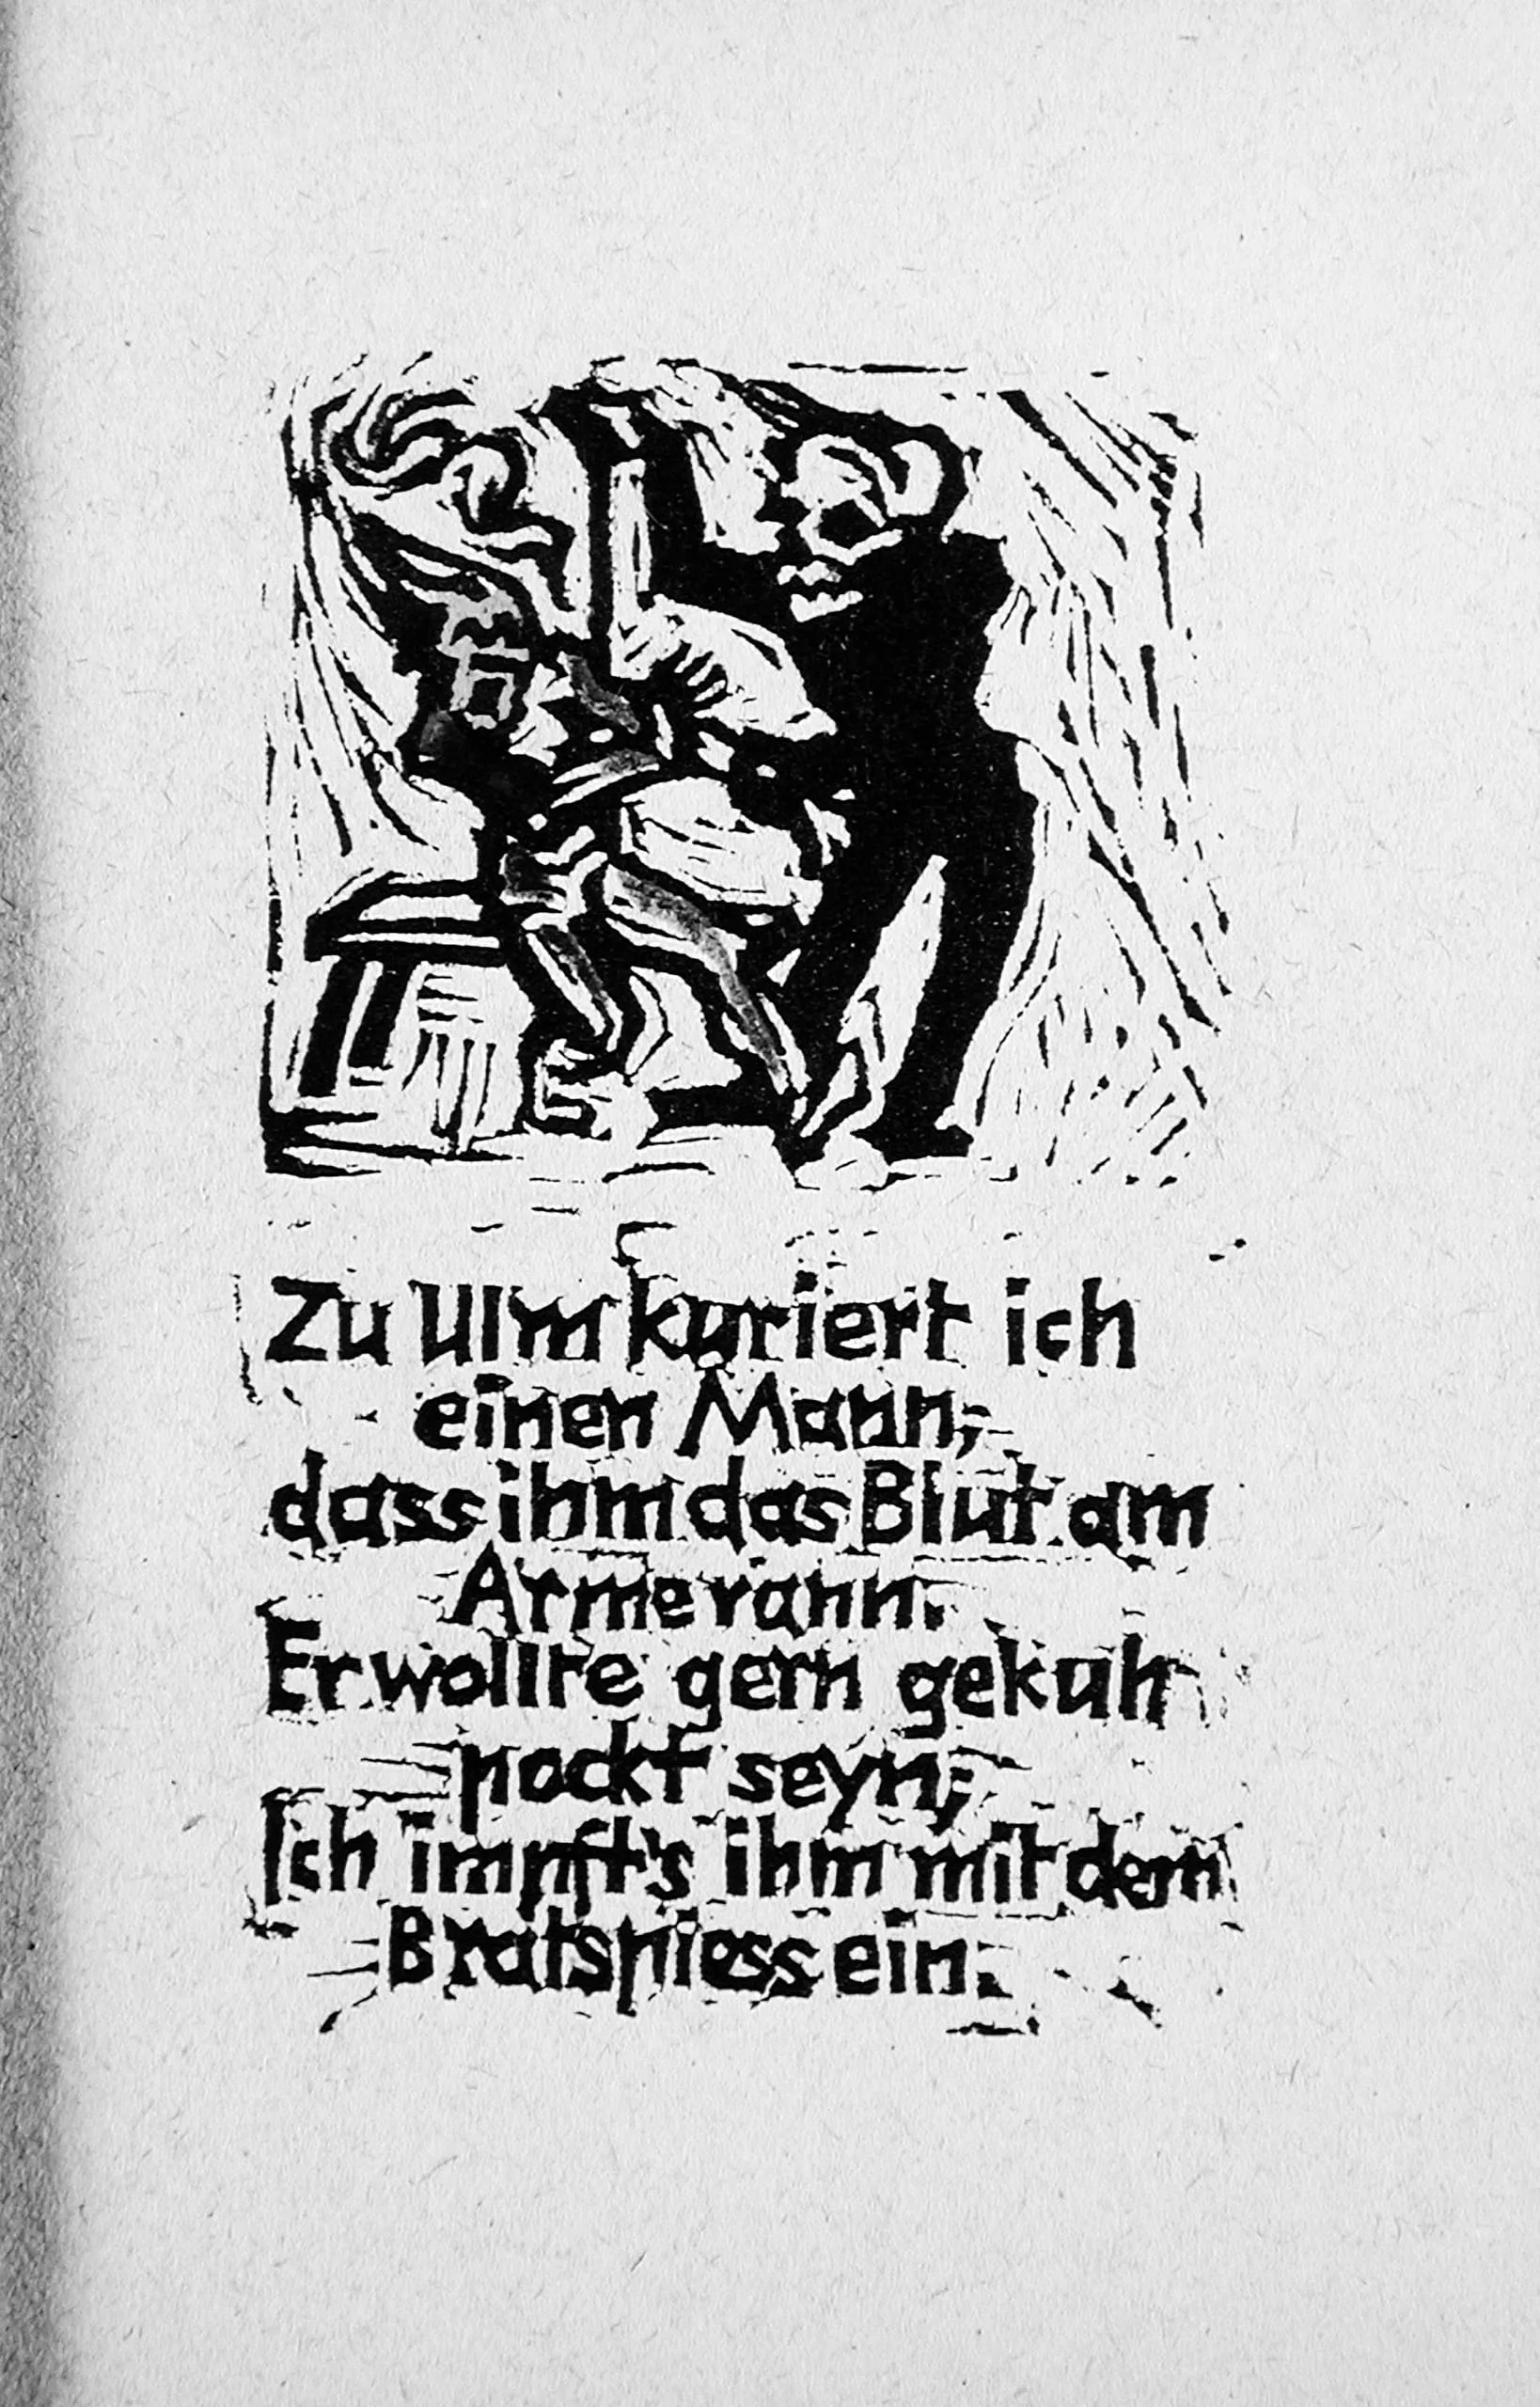 Zu Ulm kuriert ich
einen Mann,
dass ihm das Blut am
Arme rann.
Er wollte gern gekuh
pockt seyn;
Ich impft's ihm mit dem
Bratspiess ein.